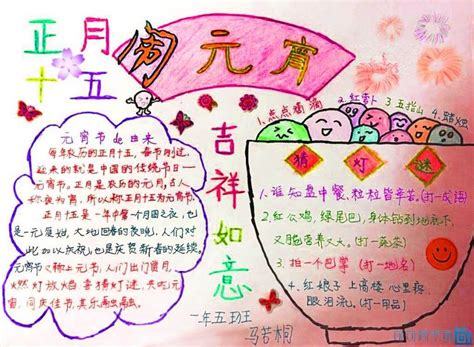 正月
十五
闹元宵
吉祥如意
元宵节de由来
每年农历的正月十五，春节刚过，
迎来的就是中国的传统节日—
元宵节。正月是农历的元月，古人
称夜为宵，所以称正月十五为元宵节。
正月十五是一年中第一个月圆之夜，也
是一元复始，大地回春的夜晚，人
们对此加以庆祝，也是庆贺新春的延续。
元宵节又称上元节，人们出门赏月，
燃灯放焰 喜猜灯谜 共吃元
宵，同庆佳节，其乐融融。
1.点点滴滴 2.红萝卜 3.五指山 4.蜡烛
猜灯谜
1.谁知盘中餐，粒粒皆辛苦。(打一成语)
2.红公鸡，绿尾巴，身体钻到地底下，
又甜营养又大。(打一蔬菜)
3.推一个巴掌 (打一地名)
4.红娘子 上高楼 心里疼
眼泪流。(打一用品)
一年五班
马若桐